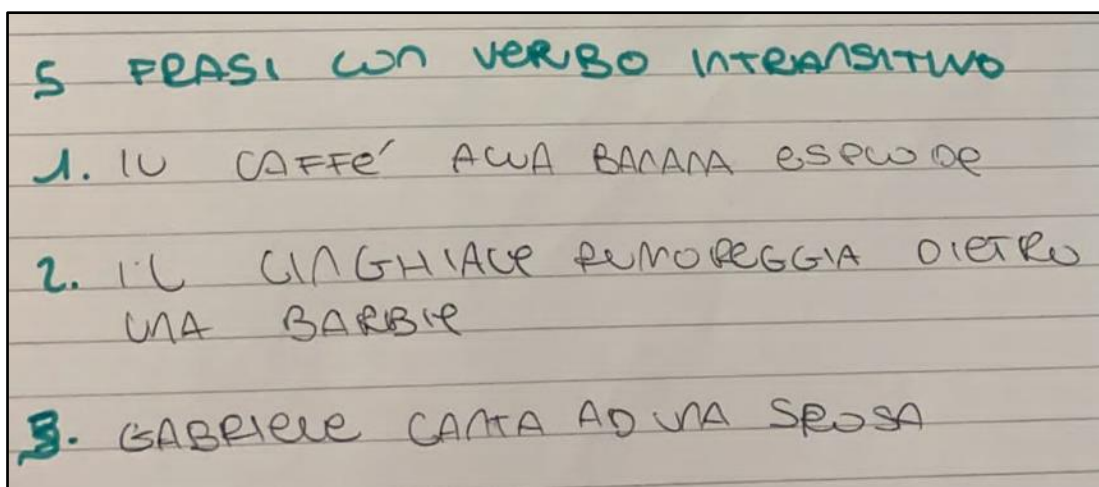 5 FRASI CON VERBO INTRANSITIVO
1. IL CAFFE' ALLA BANANA ESPLODE
2. IL CINGHIALE RUMOREGGIA DIETRO
UNA BARBIE
3. GABRIELE CANTA AD UNA SPOSA